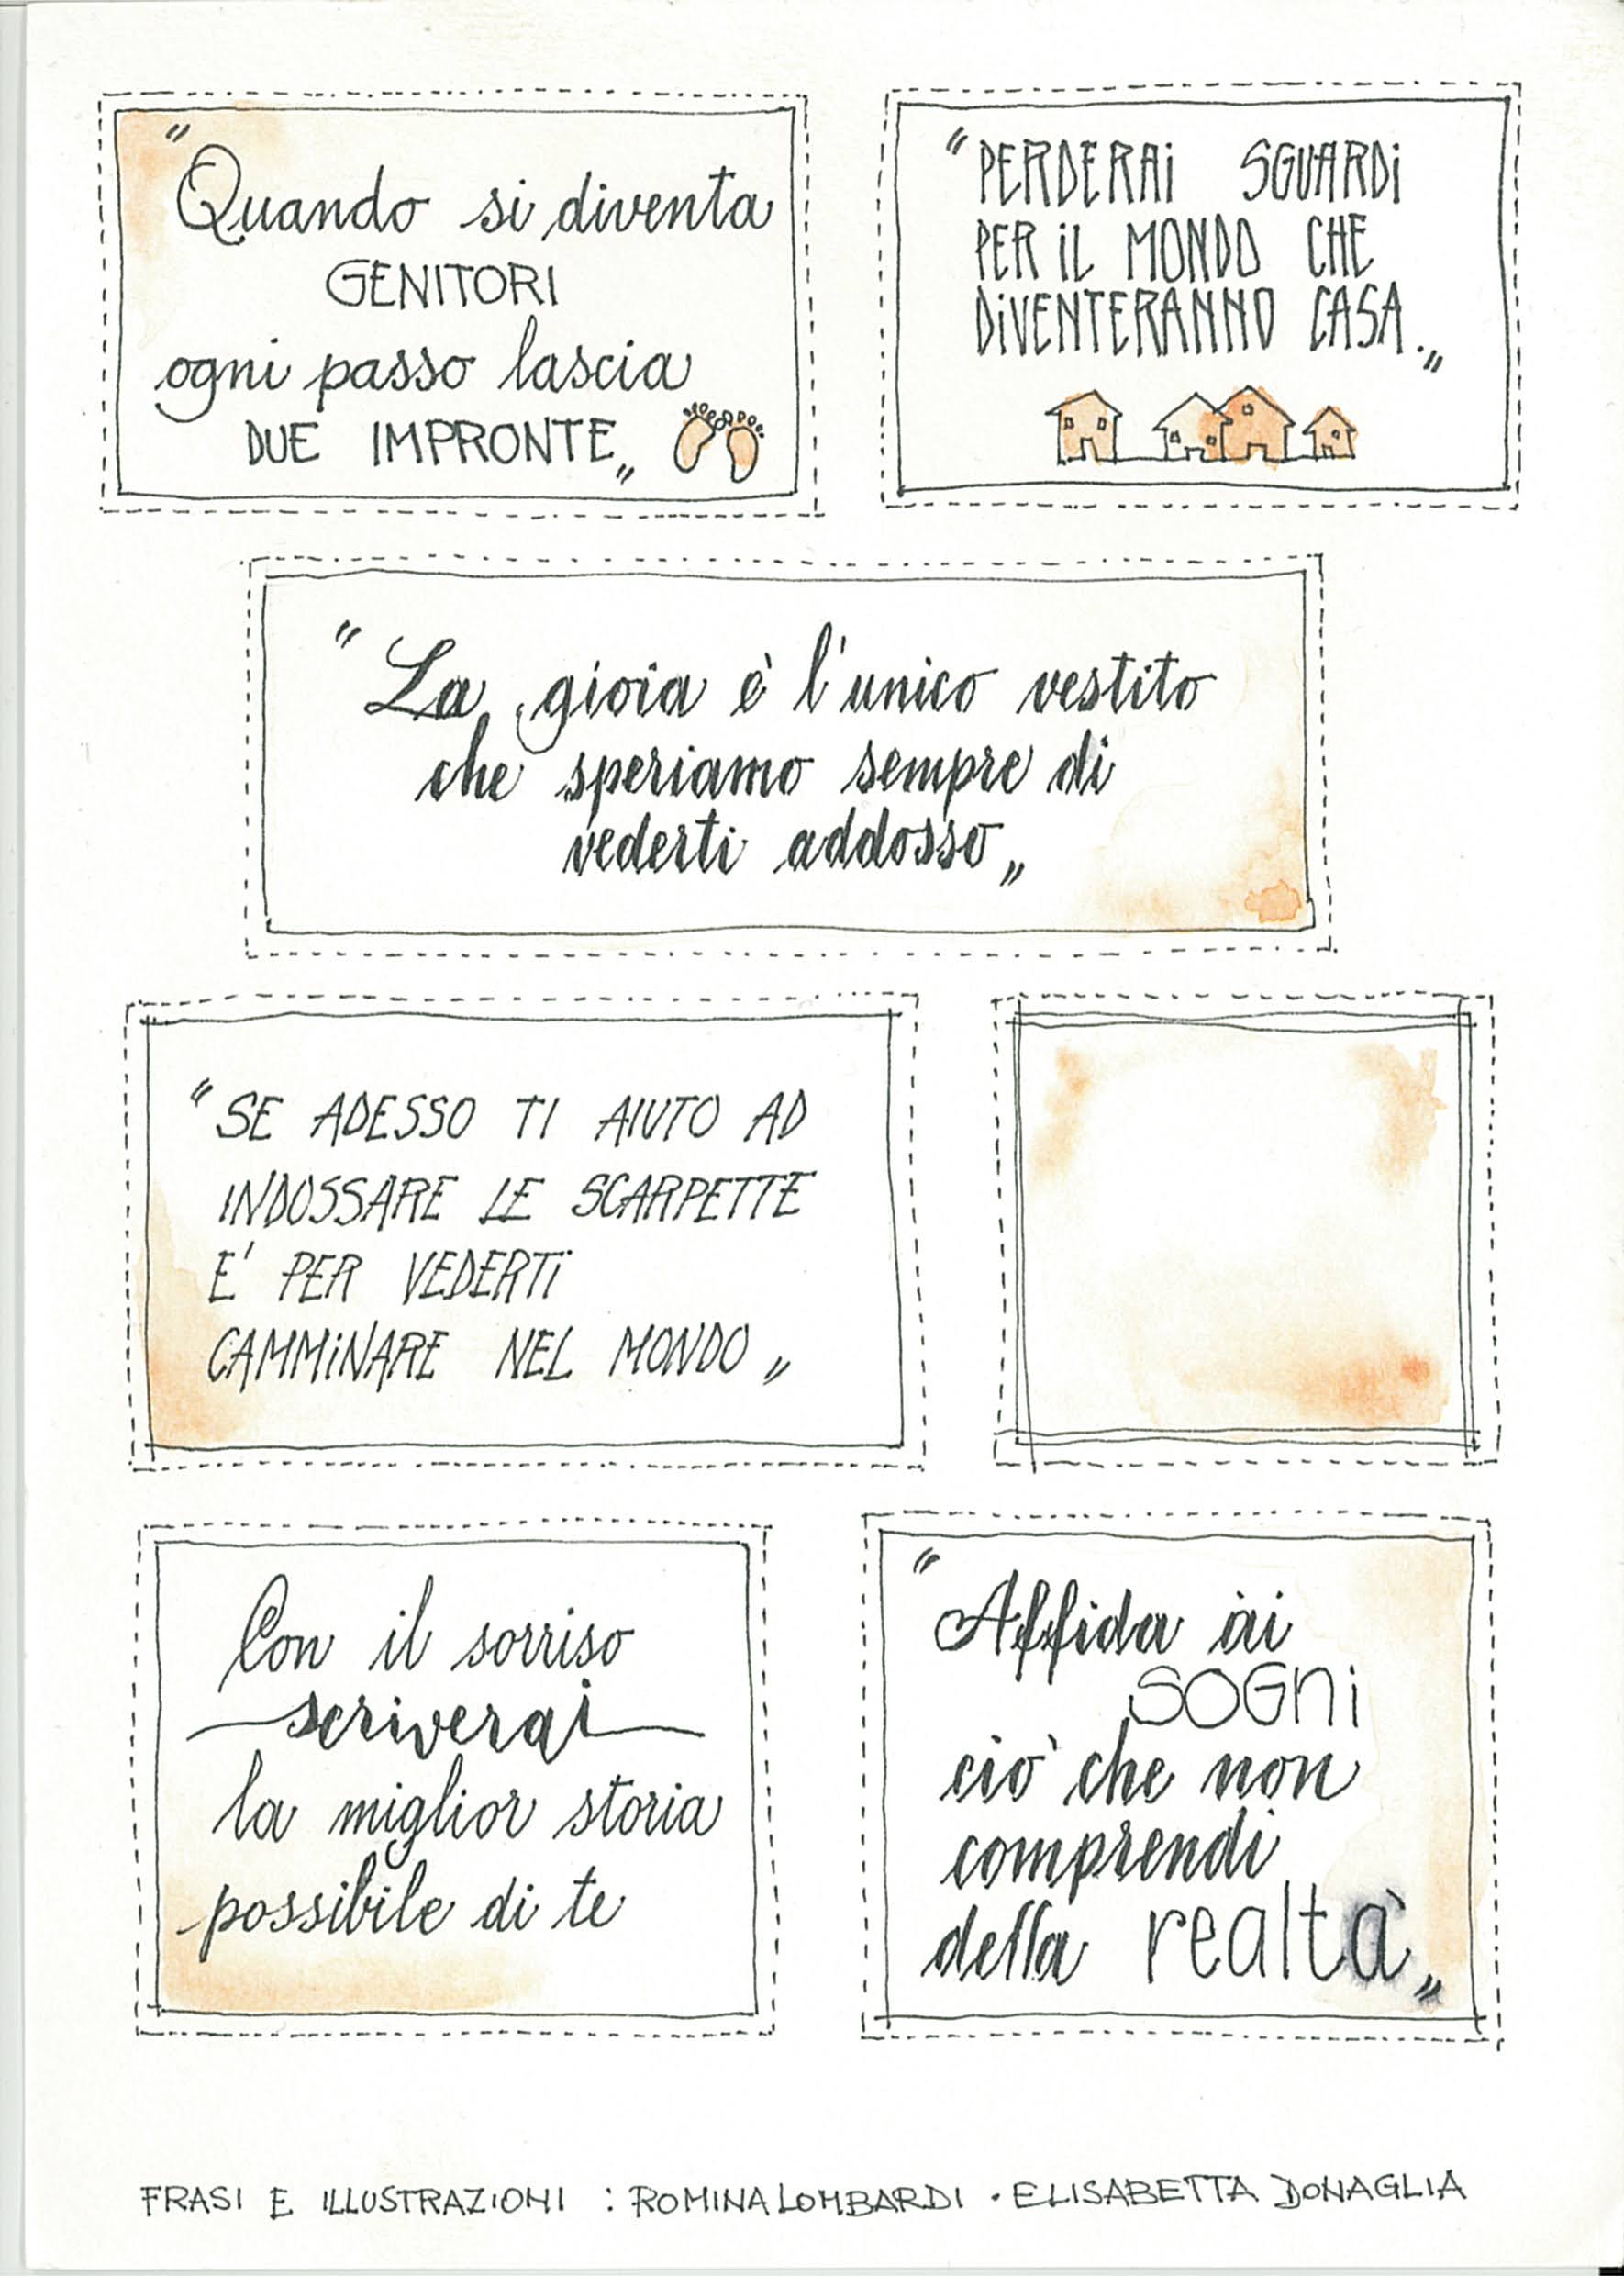 "Quando si diventa
GENITORI
ogni passo lascia
DUE IMPRONTE„
"PERDERAI SGUARDI
PER IL MONDO CHE
DIVENTERANNO CASA.„
"La gioia è l'unico vestito
che speriamo sempre di
vederti addosso„
"SE ADESSO TI AIUTO AD
INDOSSARE LE SCARPETTE
E' PER VEDERTI
CAMMINARE NEL MONDO„
Con il sorriso
scriverai
la miglior storia
possibile di te
"Affida ai
SOGNI
ciò che non
comprendi
della realtà„
FRASI E ILLUSTRAZIONI : ROMINA LOMBARDI · ELISABETTA DONAGLIA